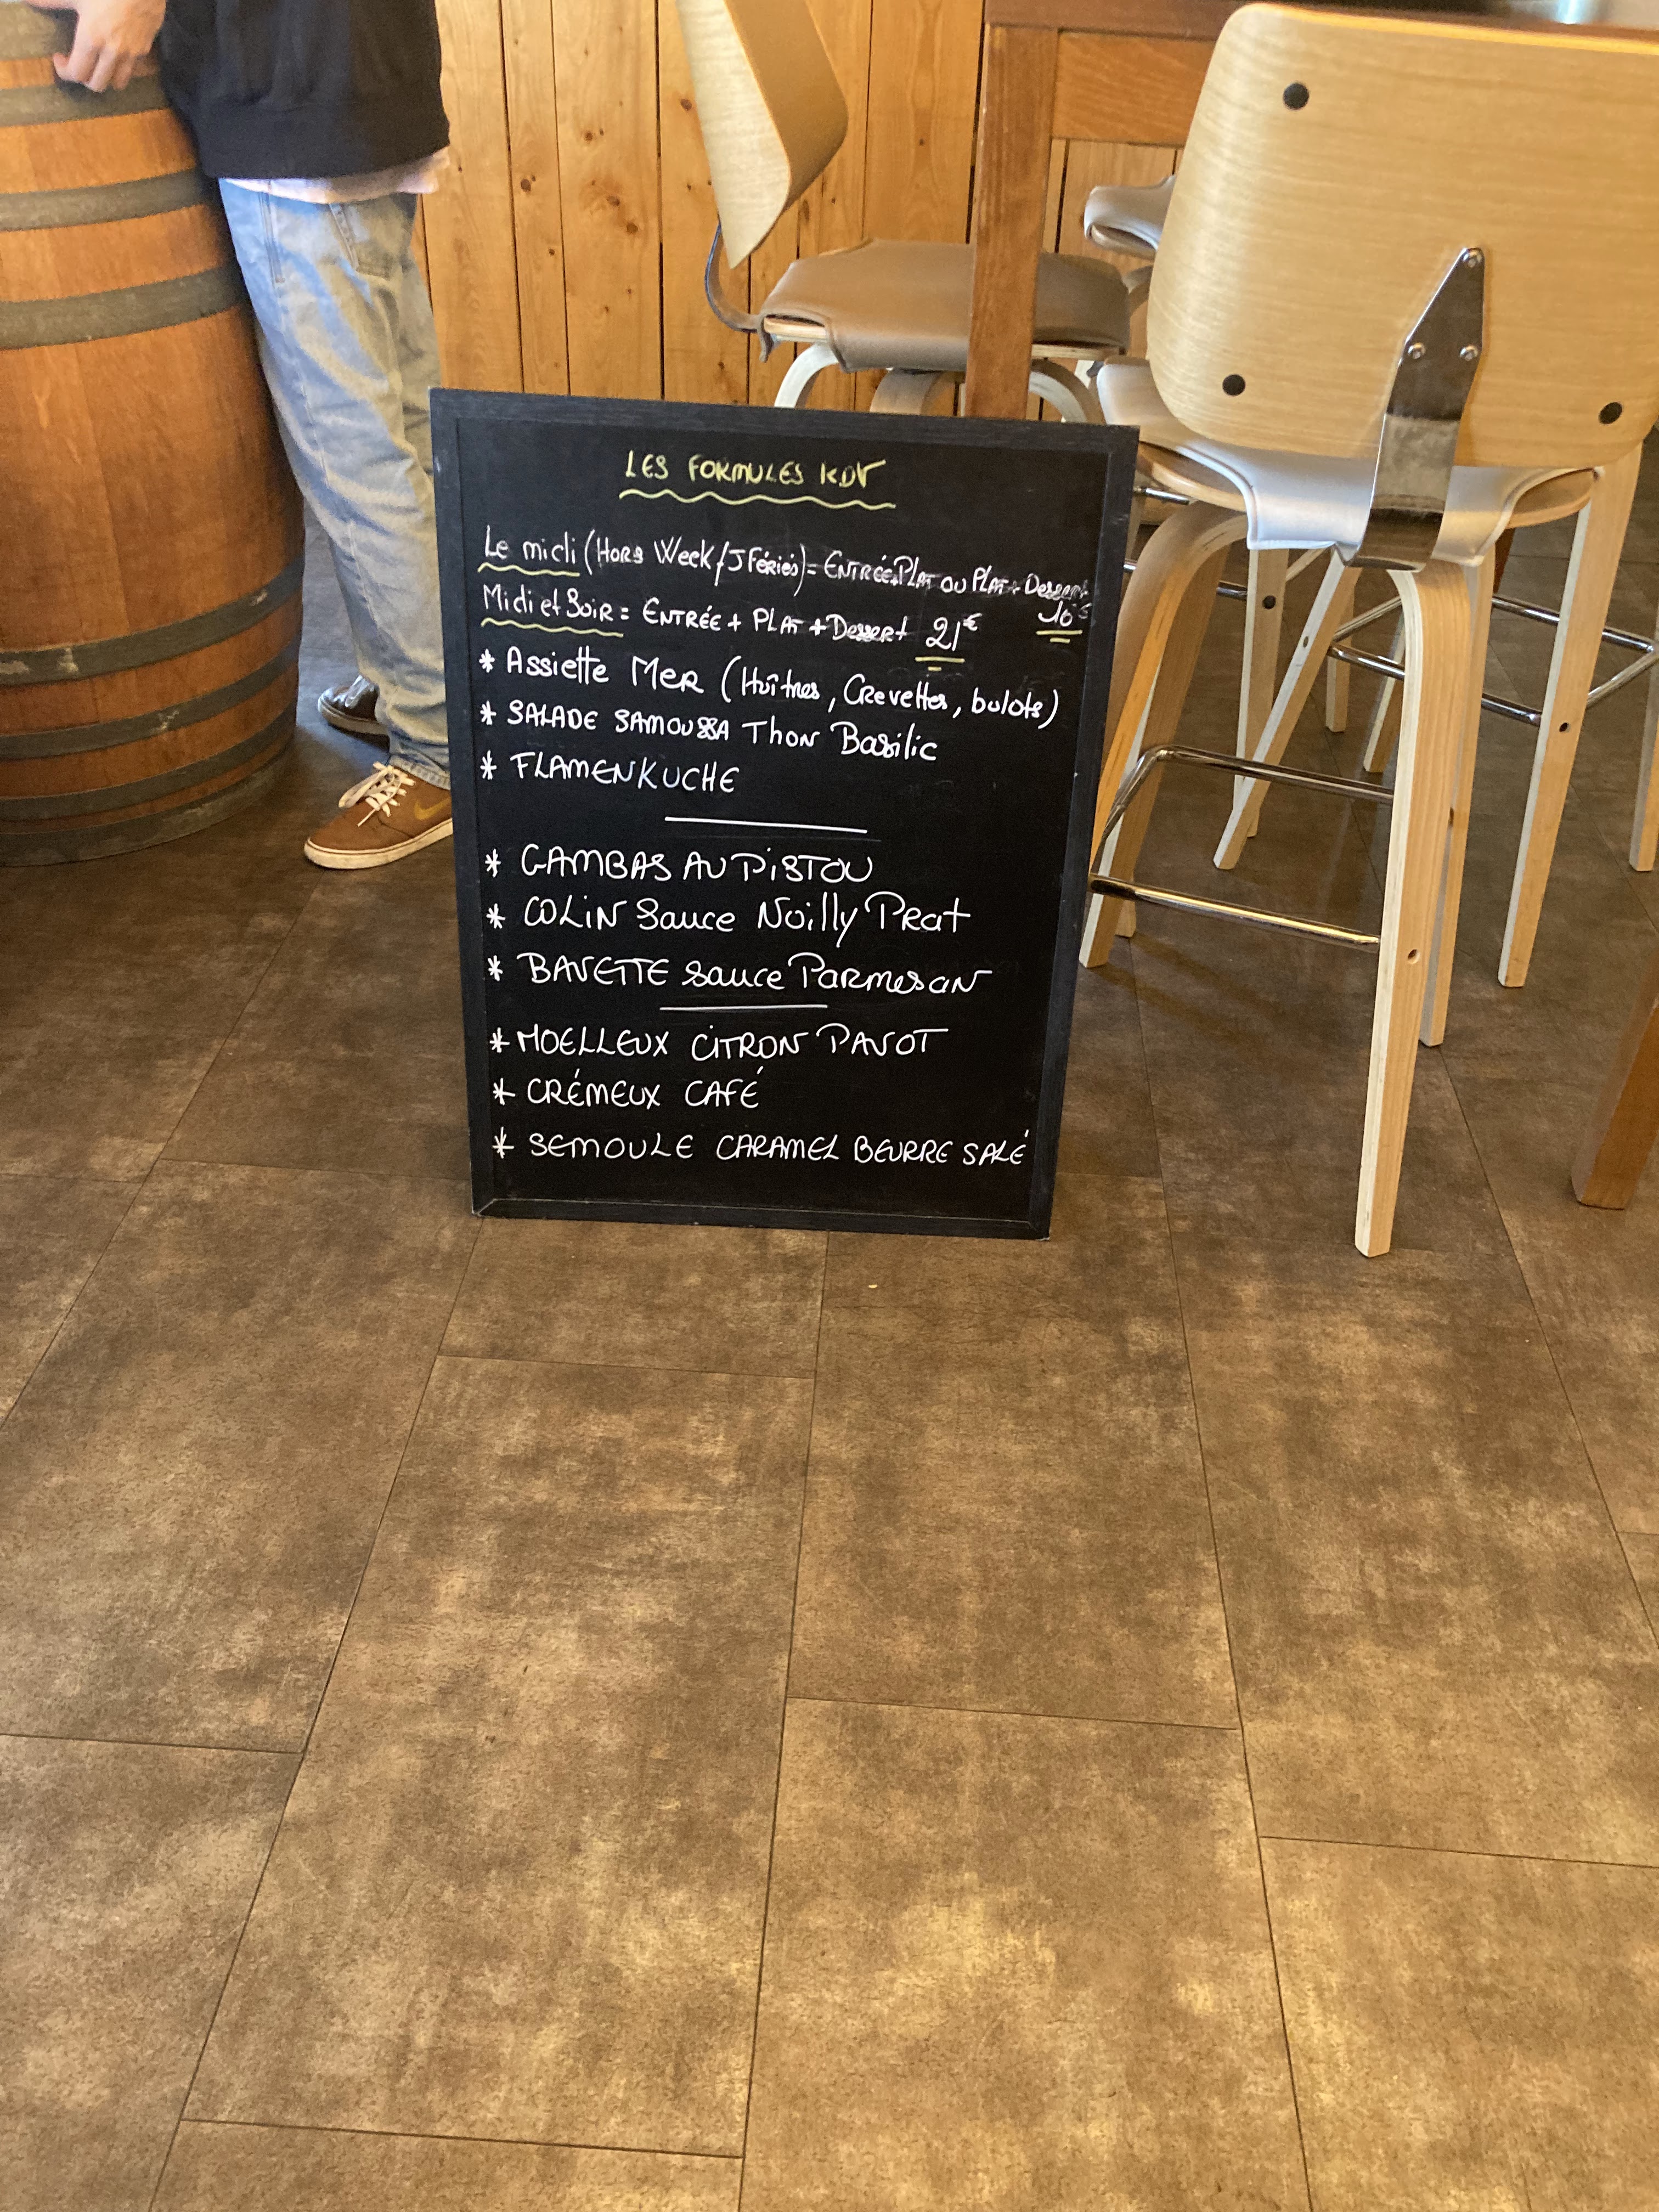 LES FORMULES KDV
Le midi (HORS Week/J Fériés) = ENTRÉE+PLAT OU PLAT+Dessert
16€
Midi et Soir = ENTRÉE + PLAT + Dessert 21€
* Assiette MER (Huîtres, Crevettes, bulots)
* SALADE SAMOUSSA Thon Basilic
* FLAMENKUCHE
* GAMBAS AU PISTOU
* COLIN Sauce Noilly Prat
* BAVETTE sauce Parmesan
* MOELLEUX CITRON PAVOT
* CRÉMEUX CAFÉ
* SEMOULE CARAMEL BEURRE SALÉ